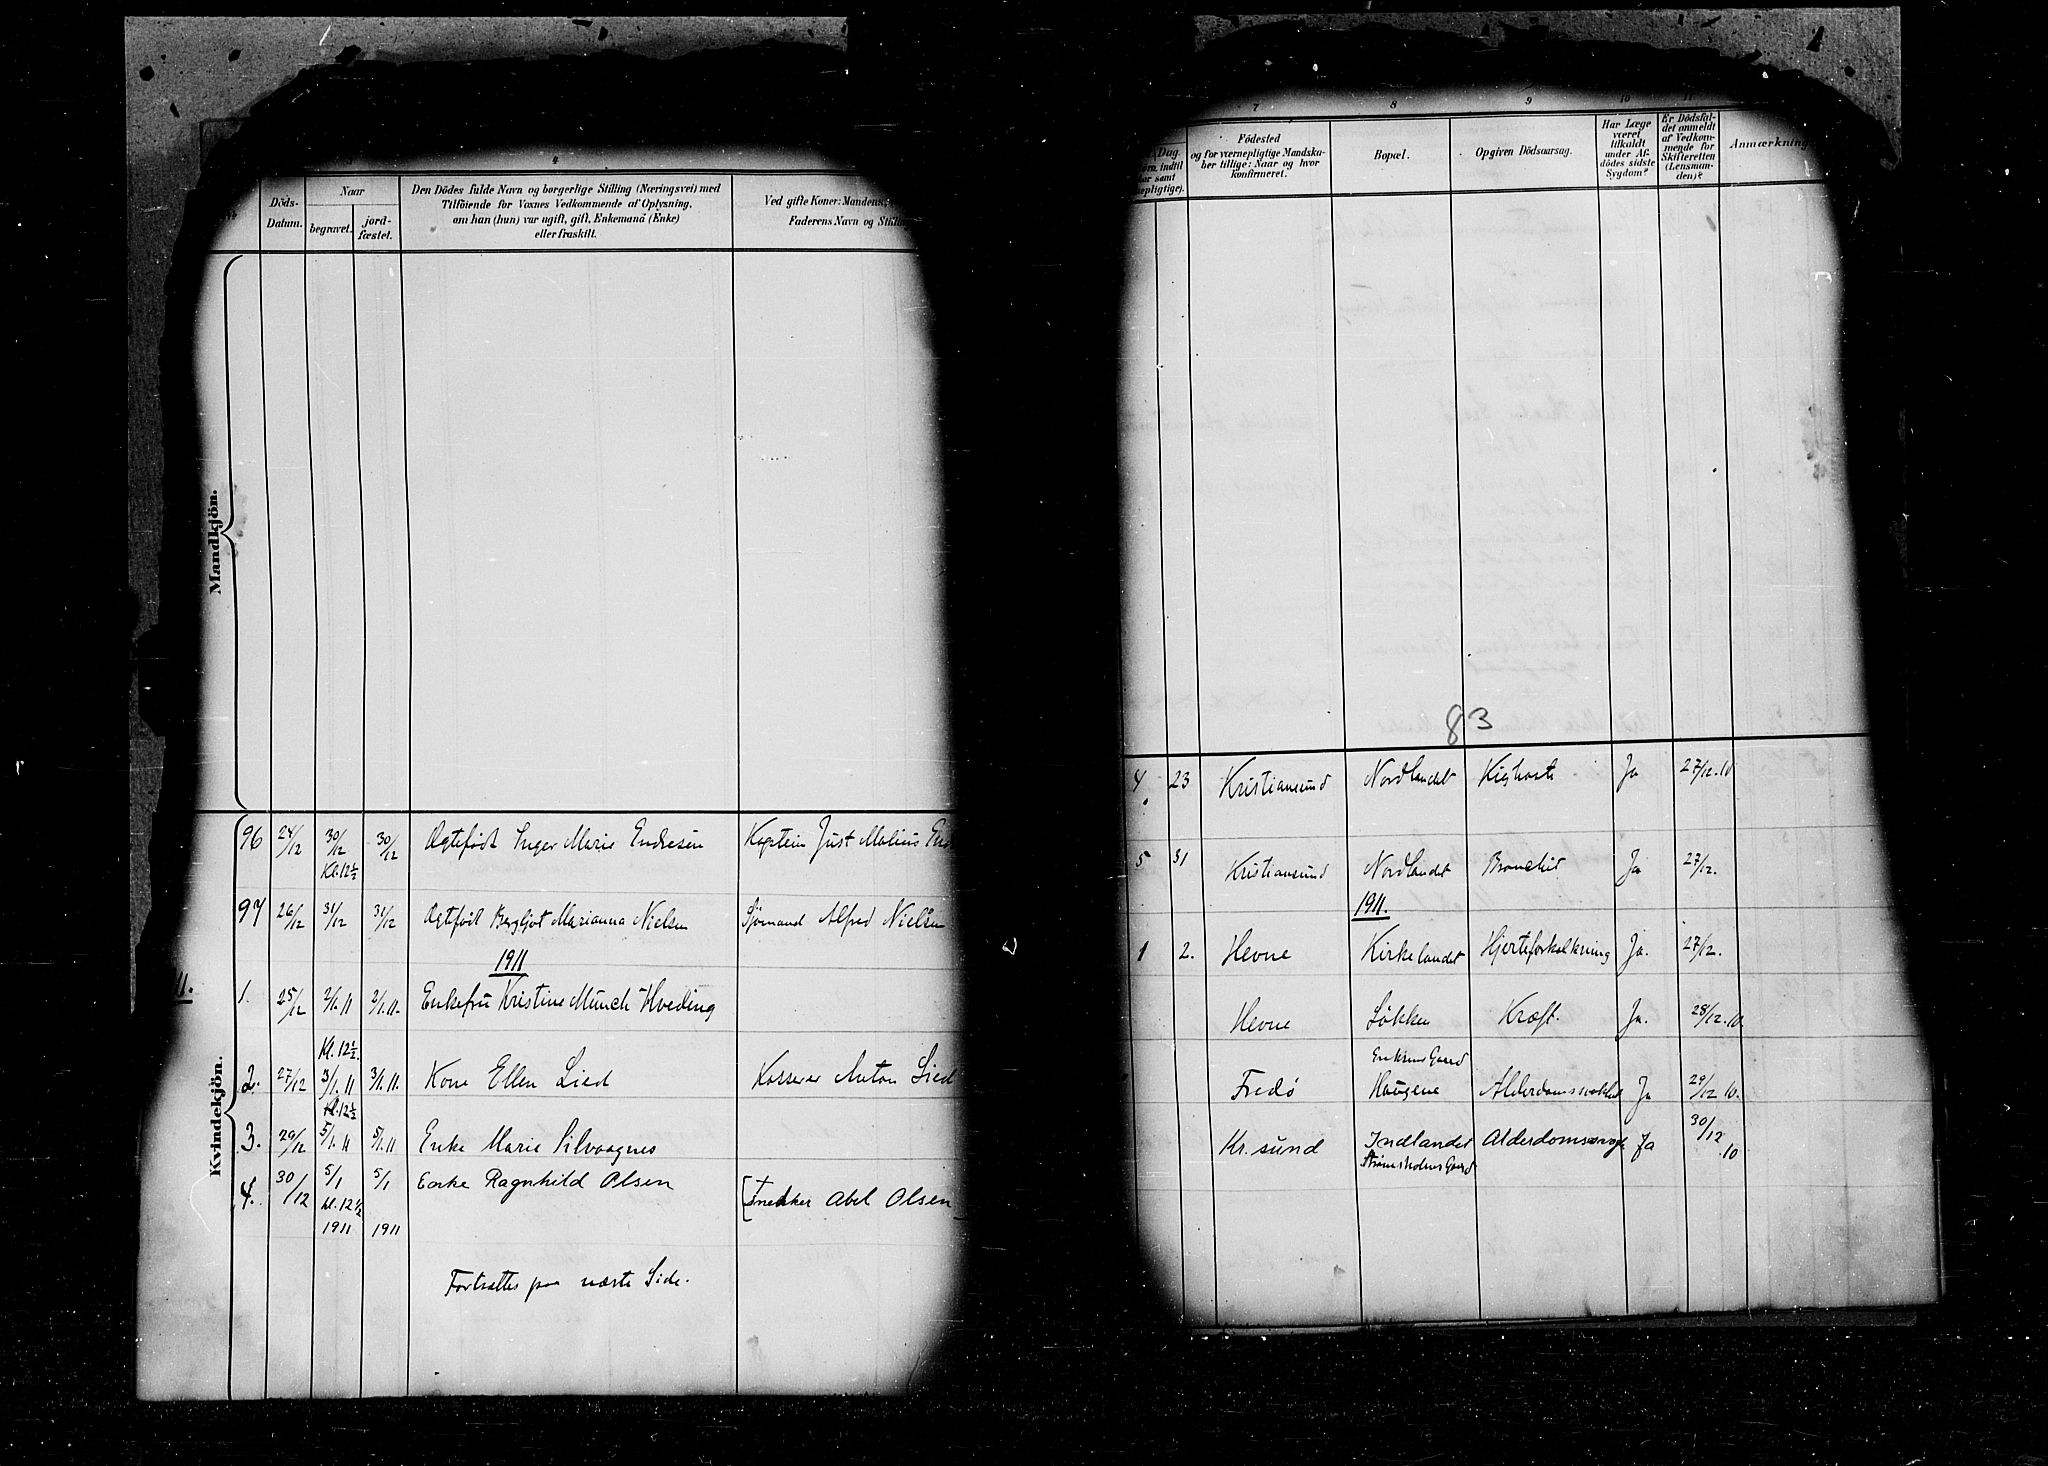 3
4
Döds-
Datum.
Naar
begravet.
jord-
fæstet.
Den Dödes fulde Navn og borgerlige Stilling (Næringsvei) med
Tilföiende for Voxnes Vedkommende af Oplysning,
om han (hun) var ugift, gift, Enkemand (Enke)
eller fraskilt.
Ved gifte Koner: Mandens,
Faderens Navn og Stilling
Mandkjön.
Kvindekjön.
96 24/12 30/12 30/12 Ægtefødt Inger Marie Endresen Kaptein Just Malius
Kl. 12½
97 26/12 31/12 31/12 Ægtefødt Bergljot Marianna Nielsen Sjømand Alfred Nielsen
1911
11.
1. 25/12 2/1. 11 2/1. 11. Enkefru Kristine Münch Hveding
Kl. 12½
2. 27/12 3/1. 11 3/1. 11. Kone Ellen Lied Kasserer Anton Lied
Kl. 12½
3. 29/12 5/1. 11 5/1. 11 Enke Marie Silvaagnes
4. 30/12 5/1 5/1 Enke Ragnhild Olsen [Snekker Abel Olsen
kl. 12½
1911 1911
Fortsættes paa næste Side.
7
8
9
10
11
Dag.
Födested
og for værnepligtige Mandska-
ber tillige: Naar og hvor
konfirmeret.
Bopæl.
Opgiven Dödsaarsag.
Har Læge
været
tilkaldt
under Af-
dödes sidste
Sygdom?
Er Dödsfal-
det anmeldt
af Vedkom-
mende for
Skifteretten
(Lensman-
den)?
Anmærkning
83
4 23 Kristiansund Nordlandet Kighoste Ja 27/12.10
5 31 Kristiansund Nordlandet Bronchit Ja 27/12.
1911.
1 2. Hevne Kirkelandet Hjerteforkalkning Ja. 27/12.
Hevne Løkken Kræft. Ja. 28/12.10.
Eriksens Gaard
Fredø Haugene Alderdomssvækkelse Ja 29/12 10.
Kr. sund Indlandet Alderdomssvagh Ja 30/12 10
Strømsholms Gaard